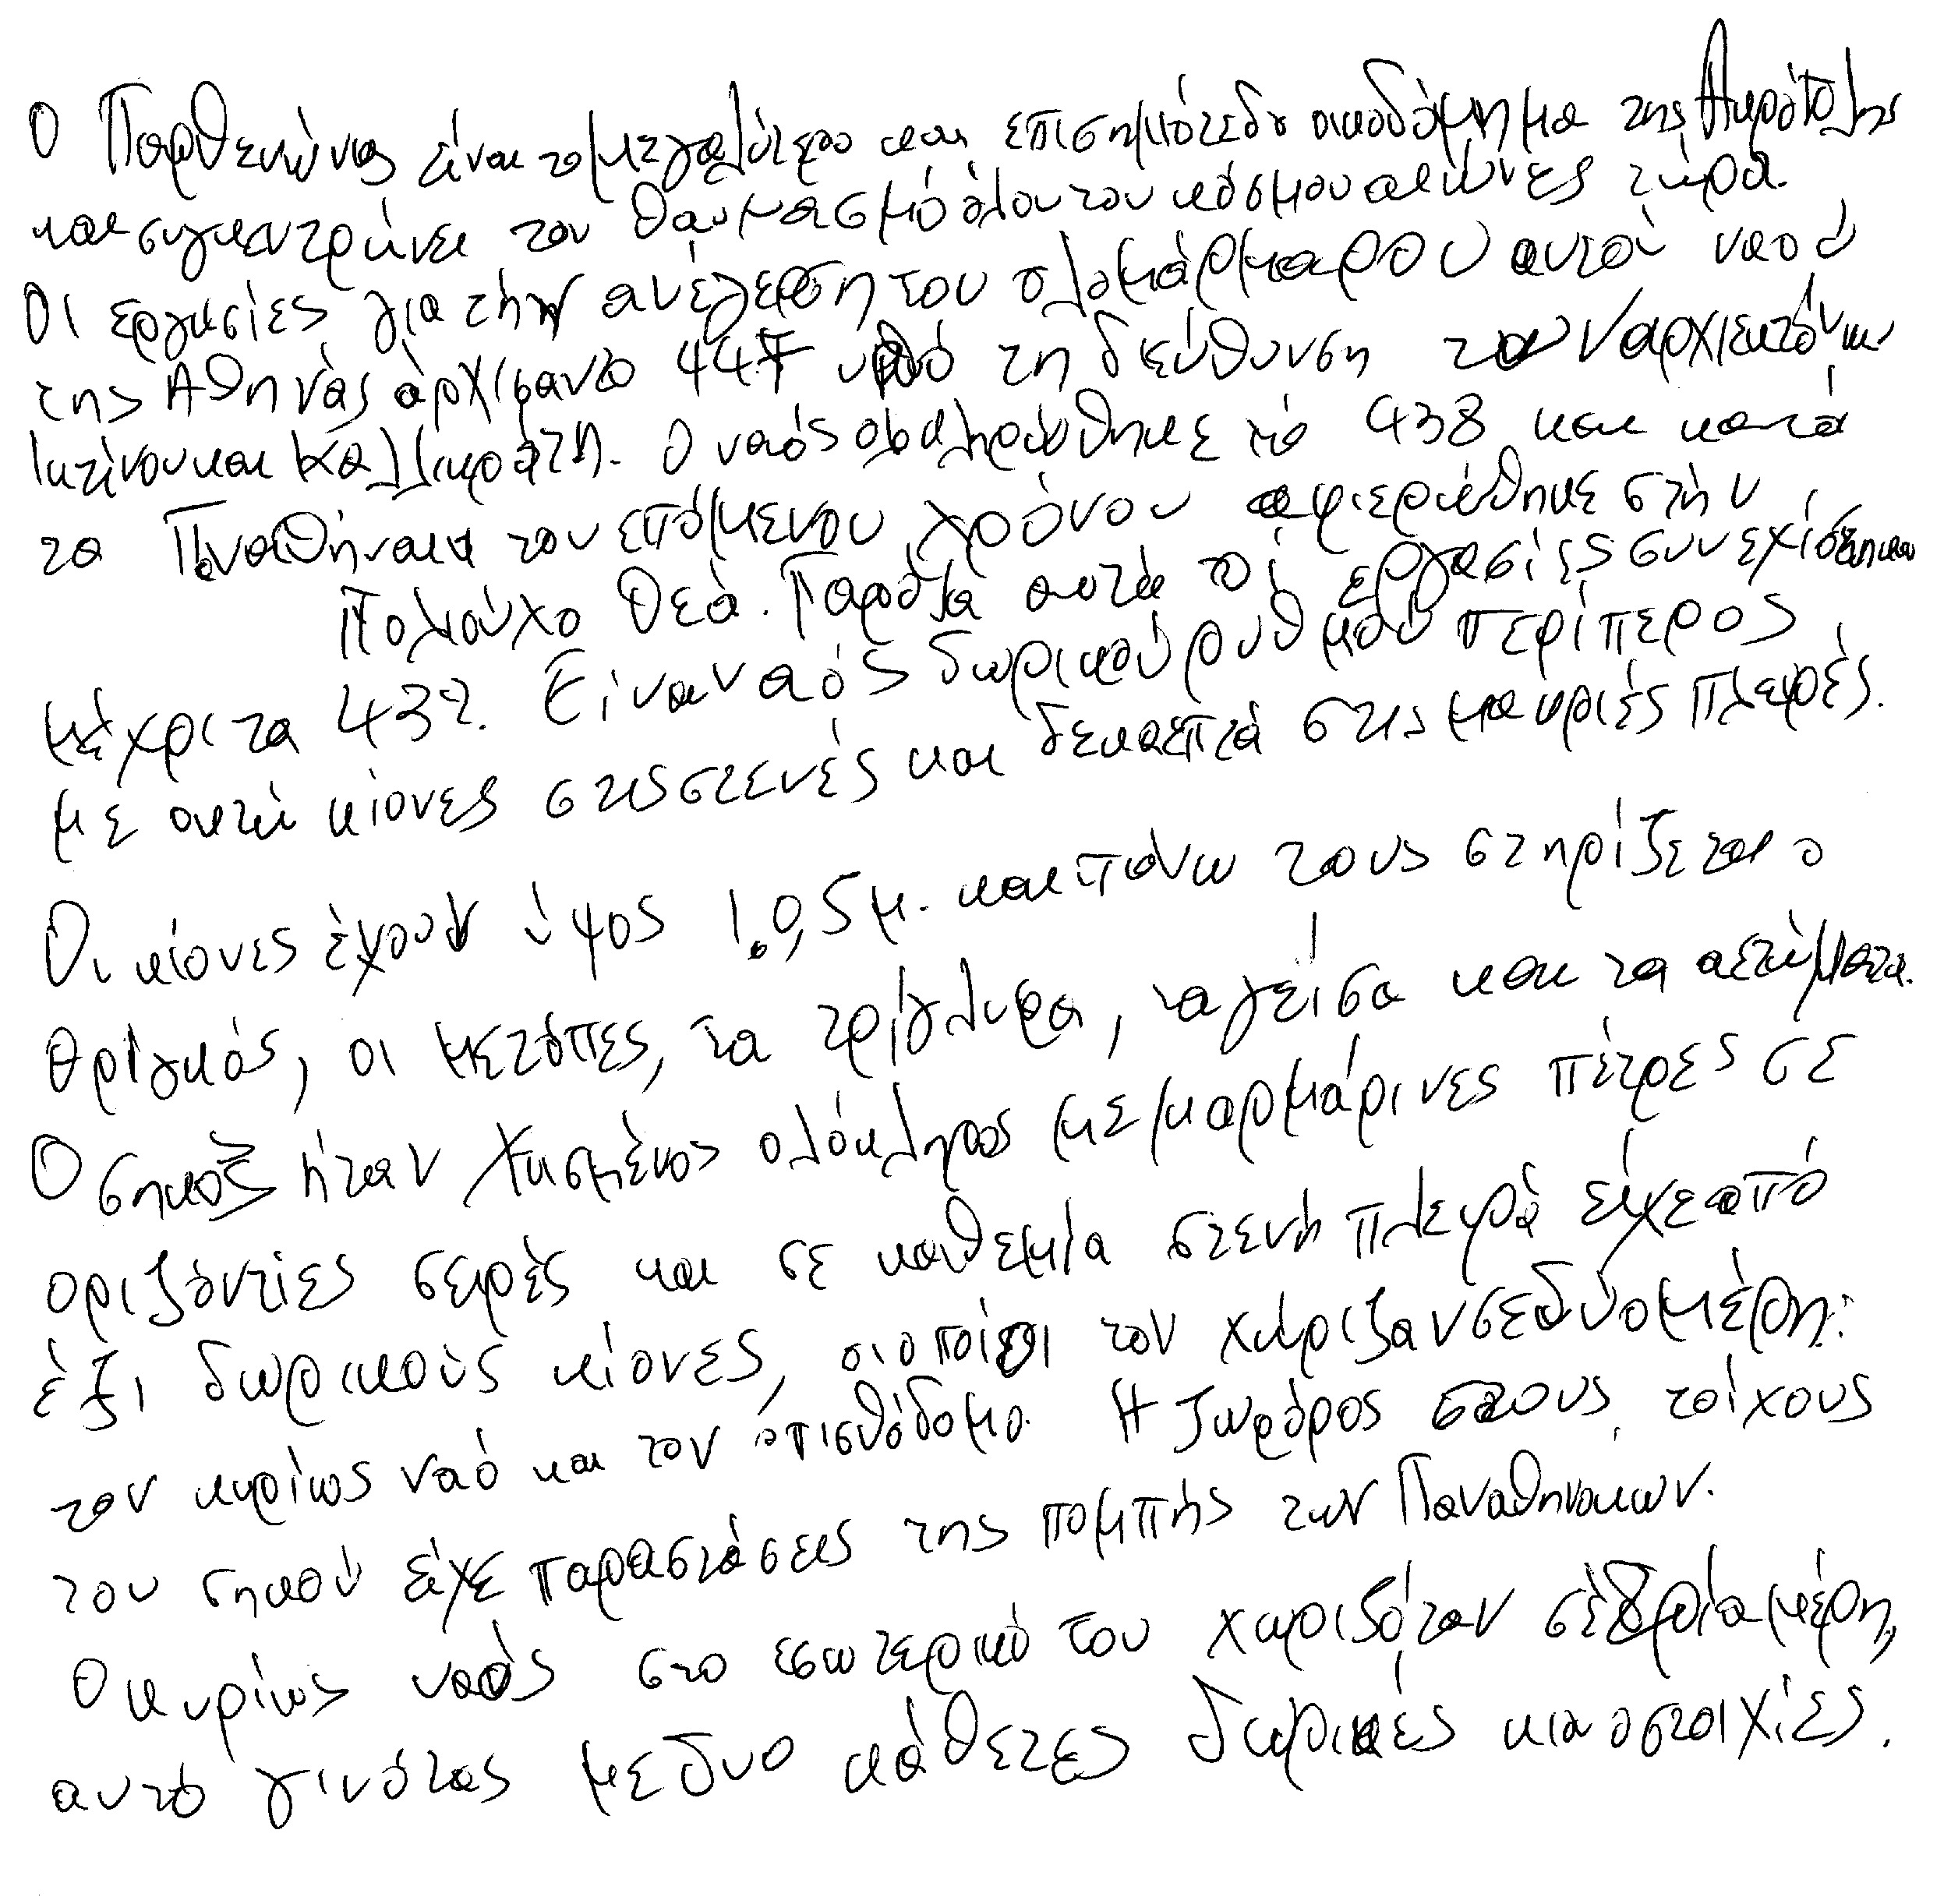 Ο Παρθενώνας είναι το μεγαλύτερο και επισημότεδο οικοδόμημα της Ακρόπολης
και συγκεντρώνει τον θαυμασμό όλου του κόσμου αιώνες τώρα.
Οι εργασίες για την ανέγερση του ολομάρμαρου αυτού ναού
της Αθηνάς άρχισαν το 447 υπό τη διεύθυνση των αρχιεκτόνων
Ικτίνου και Καλλικράτη. Ο ναός ολοκληρώθηκε το 438 και κατά
τα Παναθήναια του επόμενου χρόνου αφιερώθηκε στην
Πολιούχο Θεά. Παρόλα αυτά οι εργασίες συνεχίστηκαν
μέχρι τα 432. Είναι ναός δωρικού ρυθμού περίπερος
με οκτώ κίονες στις στενές και δεκαεπτά στις μακριές πλευρές.
Οι κίονες έχουν ύψος 10,5 μ. και πάνω τους στηρίζεται ο
θριγκός, οι μετόπες, τα τρίγλυφα, τα γείσα και τα αετώματα.
Ο σηκός ήταν χτισμένος ολόκληρος με μαρμάρινες πέτρες σε
οριζόντιες σειρές και σε καθεμία στενή πλευρά είχε από
έξι δωρικούς κίονες, οι οποίοι τον χώριζαν σε δύο μέρη:
τον κυρίως ναό και τον οπισθόδομο. Η ζωφόρος στους τοίχους
του σηκού είχε παραστάσεις της πομπής των Παναθηναιων.
Ο κυρίως ναός στο εσωτερικό του χωριζόταν σε τρία μέρη,
αυτό γινόταν με δυο κάθετες δωρικές κιονοστοιχίες.